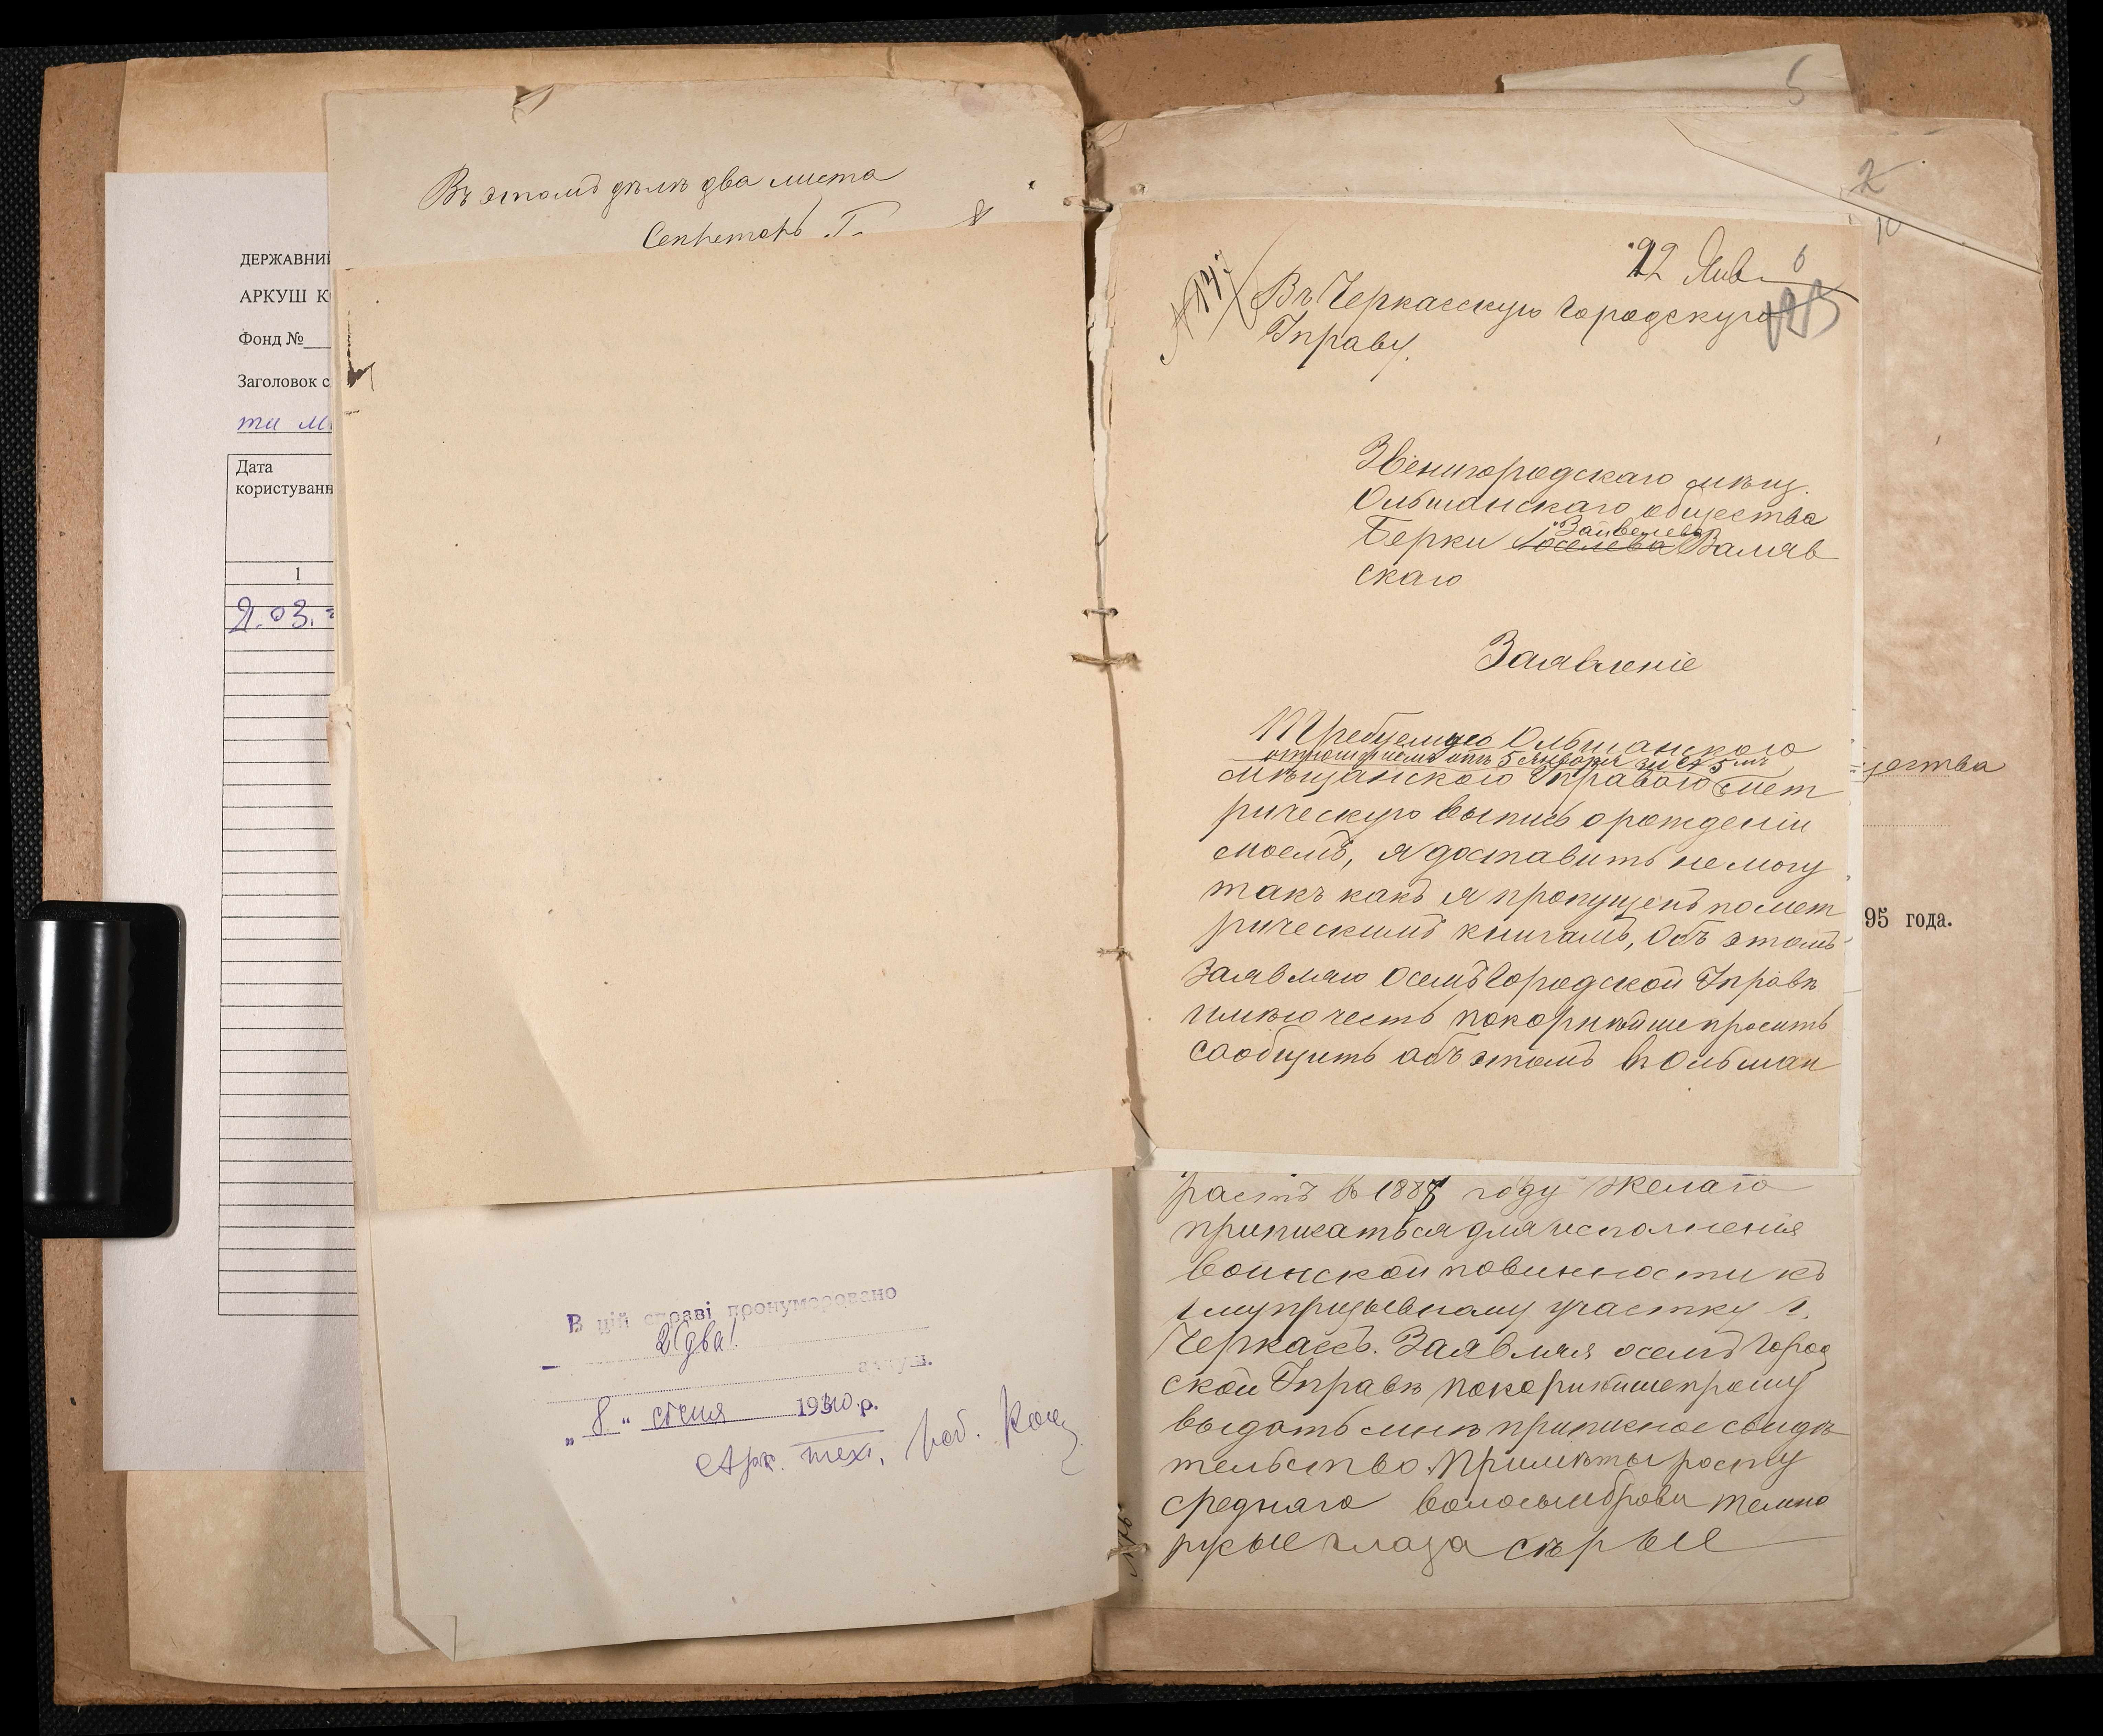 ДЕРЖАВНИ
АРКУШ К
Фонд №
Заголовок с
та м
Дата
користуванн
1
Въ этомъ дѣлѣ два листа
Секретарь Г.
В цій справі пронумеровано
2 (два)
аркуш.
„8“ січня 1940 р.
Арх. тех. роб.
5
2
12 Янв 6
Въ Черкасскую Городскую
Управу.
Звенигородскаго мѣщ.
Ольшанскаго общества
Зайвелева
Берки Іоселева Заляв
скаго
Заявленіе
Требуемую Ольшанскою
отношеніемъ отъ 5 Января за № 5мъ
мѣщанскою Управою мет
рическую выпись о рожденіи
моемъ, я доставить не могу
такъ какъ я пропущенъ по мет
рическимъ книгамъ, Объ этомъ
заявляю осемъ Городской Управѣ
имѣю честь покорнѣйше просить
сообщить объ этомъ въ Ольшан
щества
95 года.
растъ въ 1887 году желаю
приписаться для исполненія
воинской повинности къ
1 му призывному участку г.
Черкассъ. Заявляя осемъ Город
ской Управѣ покорнѣйше прошу
выдать мнѣ приписное свидѣ
тельство. Примѣты росту
средняго волосы и брови темно
русые глаза сѣрые